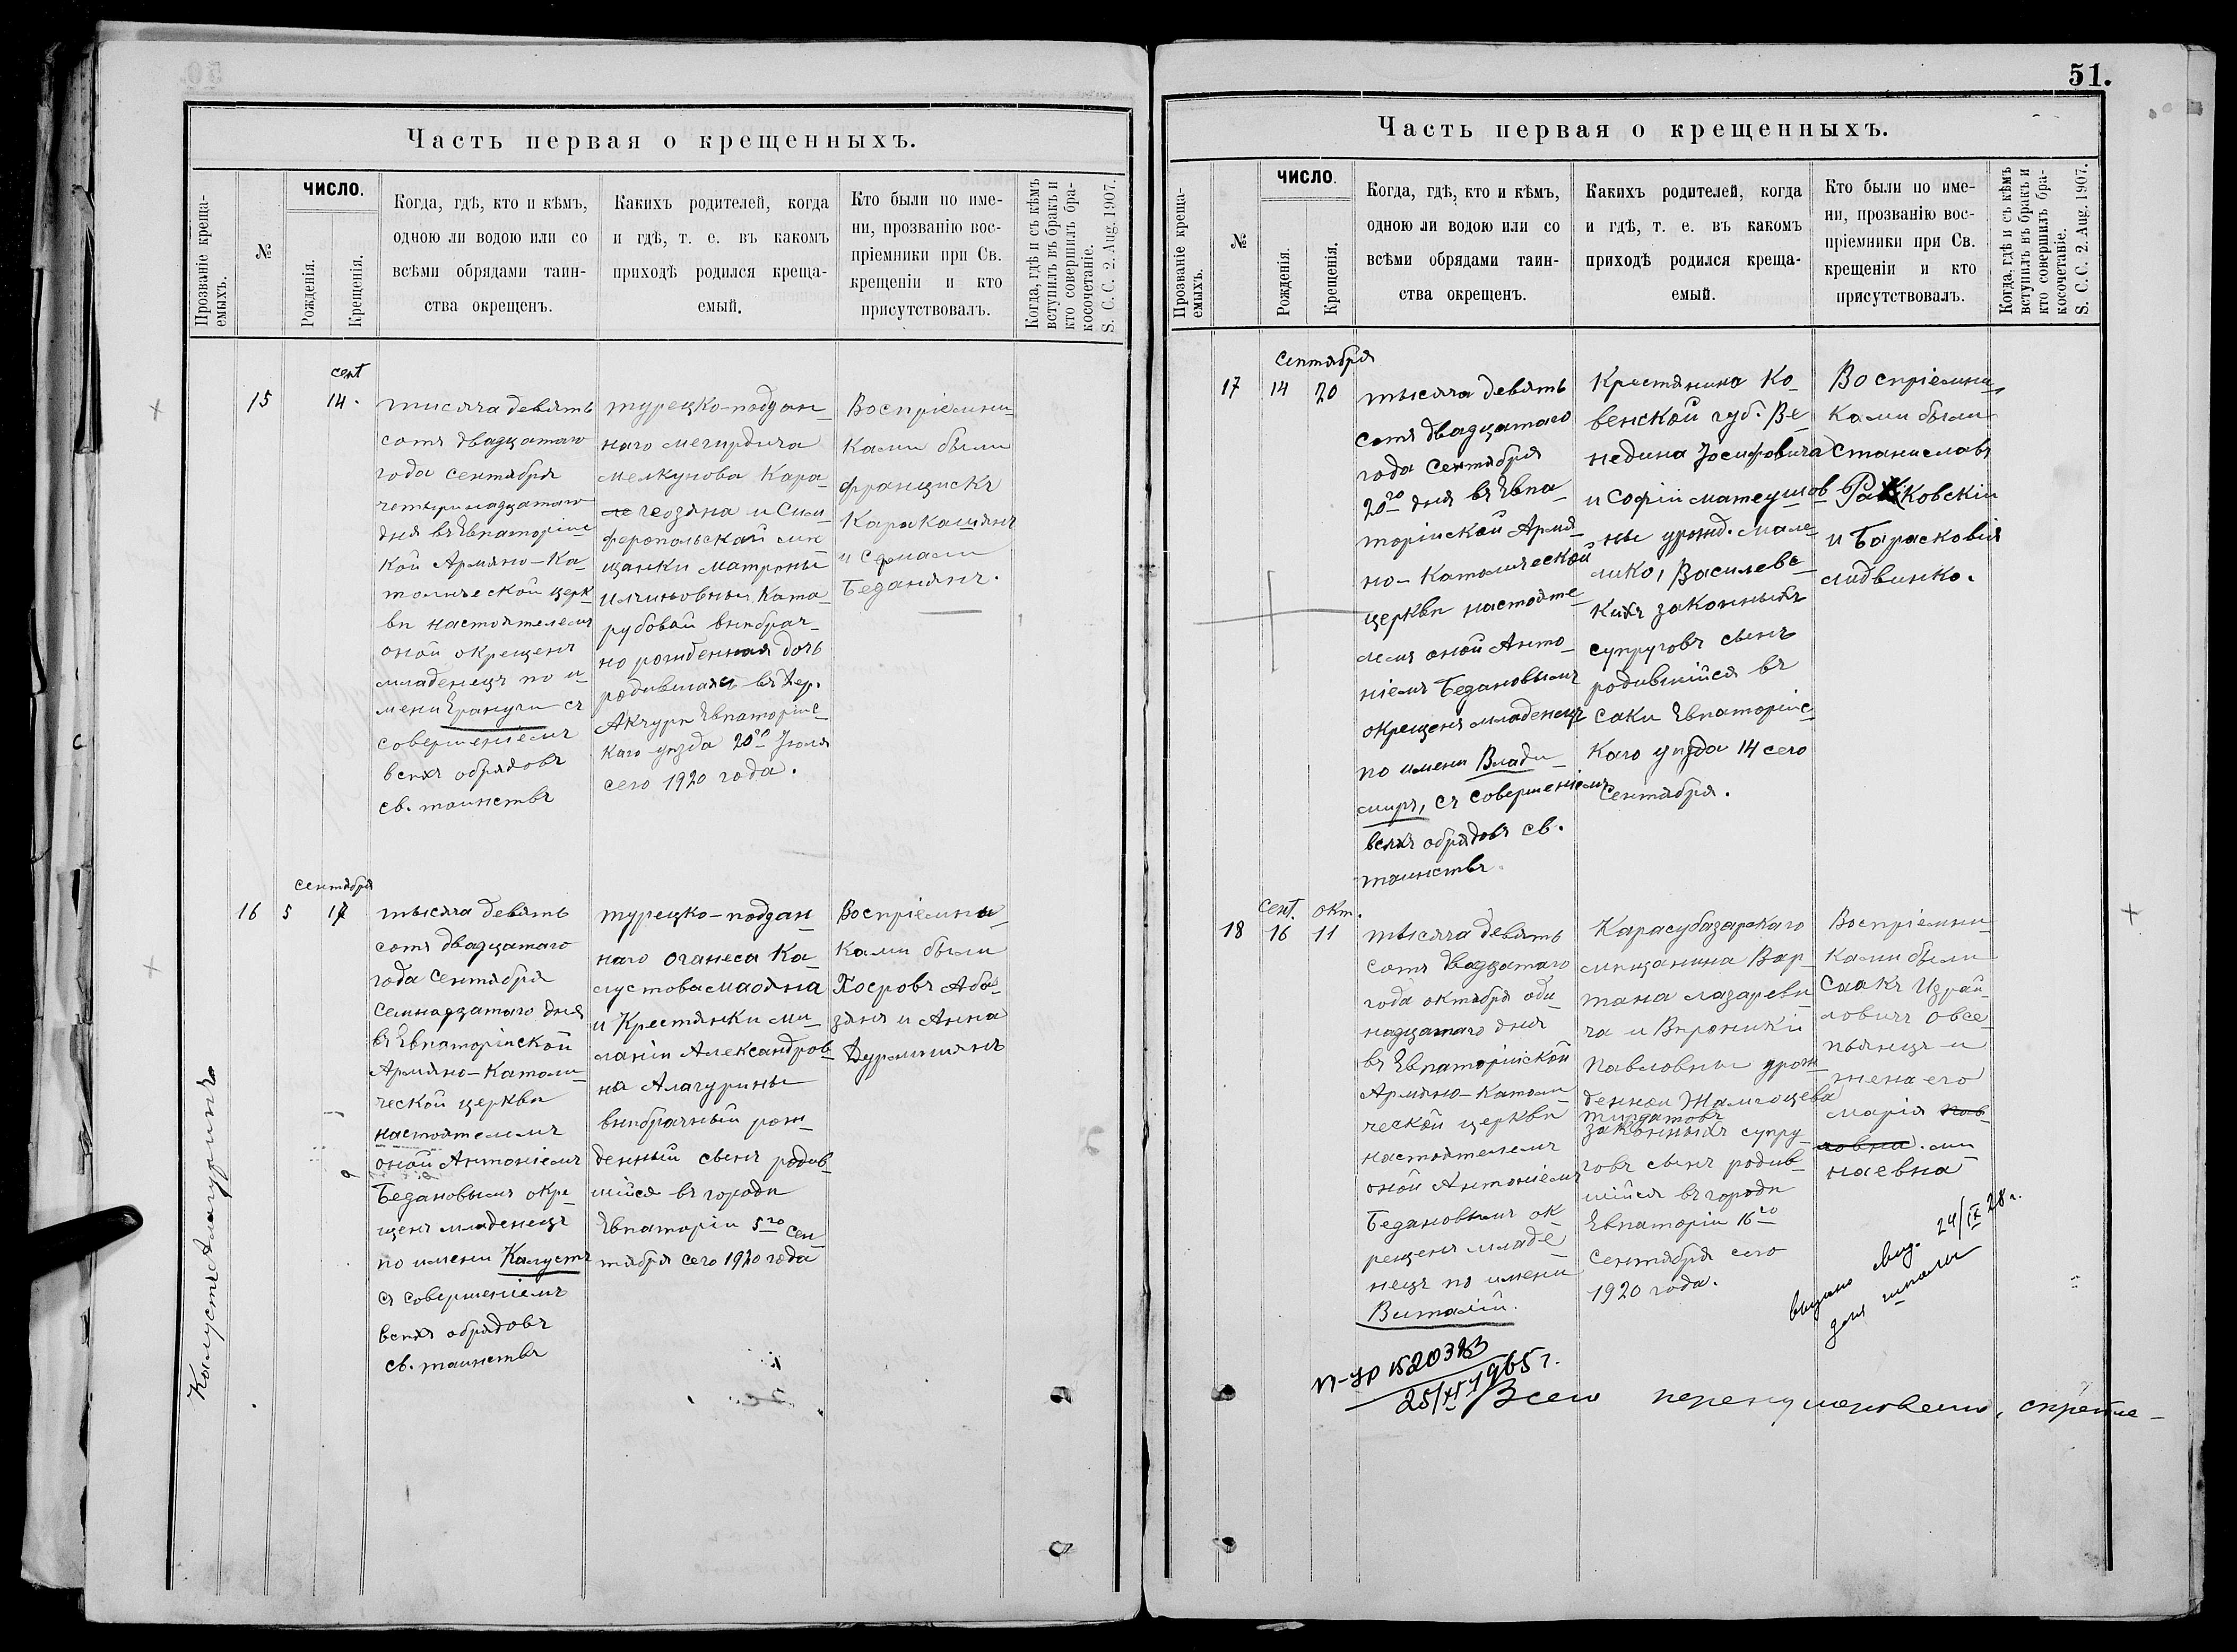 Часть первая о крещенныхъ.
Прозваніе креща-
емыхъ.
№
ЧИСЛО.
Рожденія.
Крещенія.
Когда, гдѣ, кто и кѣмъ,
одною ли водою или со
всѣми обрядами таин-
ства окрещенъ.
Какихъ родителей, когда
и гдѣ, т. е. въ какомъ
приходѣ родился креща-
емый.
Кто были по име-
ни, прозванію вос-
пріемники при Св.
крещеніи и кто
присутствовалъ.
Когда, гдѣ и съ кѣмъ
вступилъ въ бракъ и
кто совершилъ бра-
косочетаніе.
S. C. C. 2. Aug. 1907.
сент
15
14.
тисяча девять
сотя двадцатаго
года сентября
четырнадцатаго
дня въ Евпаторійс
кой Армяно-Ка-
толической церк
ви настоятелемъ
оной окрещенъ
младенецъ по и-
мени Ерануги съ
совершеніемъ
всѣхъ обрядовъ
св. таинствъ
турецко-поддан
наго мегирдича
мелкунова Кара-
геозяна и Сим
феропольской мѣ
щанки матроны
Ката-
рубовой внѣбрач-
но рожденная дочь
родившаяся въ дер.
Акчурѣ Евпаторійс-
каго уѣзда 20го Іюля
сего 1920 года.
Воспріемни-
ками были
францискъ
Каракашянъ
и
Беданянъ.
сентября
16
5
17
тысяча девять
сотя двадцатаго
года сентября
семнадцатаго дня
въ Евпаторійской
Армяно-Католи-
ческой церкви
настоятелемъ
оной Антоніемъ
Бедановымъ окре-
щенъ младенецъ
по имени Калустъ
съ совершеніемъ
всѣхъ обрядовъ
св. таинствъ
турецко-поддан
наго Оганеса Ка-
лустова
и Крестянки ми-
ланіи Александров-
на Алагурины
внѣбрачный рож-
денный сынъ родив-
шійся въ городѣ
Евпаторіи 5го сен-
тября сего 1920 года
Воспріемни-
ками были
Хосровъ Аба-
зянъ и Анна
Дурмишянъ
Калустъ Алагуринъ
51.
Часть первая о крещенныхъ.
Прозваніе креща-
емыхъ.
№
ЧИСЛО.
Рожденія.
Крещенія.
Когда, гдѣ, кто и кѣмъ,
одною ли водою или со
всѣми обрядами таин-
ства окрещенъ.
Какихъ родителей, когда
и гдѣ, т. е. въ какомъ
приходѣ родился креща-
емый.
Кто были по име-
ни, прозванію вос-
пріемники при Св.
крещеніи и кто
присутствовалъ.
Когда, гдѣ и съ кѣмъ
вступилъ въ бракъ и
кто совершилъ бра-
косочетаніе.
S. C. C. 2. Aug. 1907.
сентября
17
14
20
тысяча девять
сотя двадцатаго
года сентября
20го дня въ Евпа-
торійской Армя
но-Католической
церкви настояте-
лемъ оной Анто-
ніемъ Бедановымъ
окрещенъ младенецъ
по имени Влади-
миръ, съ совершеніемъ
всѣхъ обрядовъ св.
таинствъ.
Крестянина Ко-
венской губ. Ве-
недина Іосифовича
и Софіи матеушов-
ны урожд. мале-
лико, Василевс-
кихъ законныхъ
супруговъ сынъ
родившійся въ
саки Евпаторійс-
каго уѣзда 14 сего
Сентября.
Воспріемни-
ками были
Станиславъ
Раковскій
и Барасковія
Лидвинко.
сент.
окт.
18
16
11
тысяча девять
сотъ двадцатаго
года октября оди
надцатаго дня
въ Евпаторійской
Армяно-Католи-
ческой церкви
настоятелемъ
оной Антоніемъ
Бедановымъ ок-
рещенъ младе-
нецъ по имени
Виталій.
Карасубазарскаго
мѣщанина Вар-
тана лазареви-
ча и Вѣроники
Павловны урож-
денной Жамгоцева
законныхъ супру-
говъ сынъ родив-
шійся въ городѣ
Евпаторіи 16го
сентября сего
1920 года.
Воспріемни-
ками были
Саакъ Израй-
ловичъ Овсе-
пьянцъ и
жена его
марія пав
ловна. ми
наевна
выдано свид. 24/IX 28 г.
для школы
п-ур 1520383
25/XI 1965 г.
Всего перенумерованно, скрѣпле-